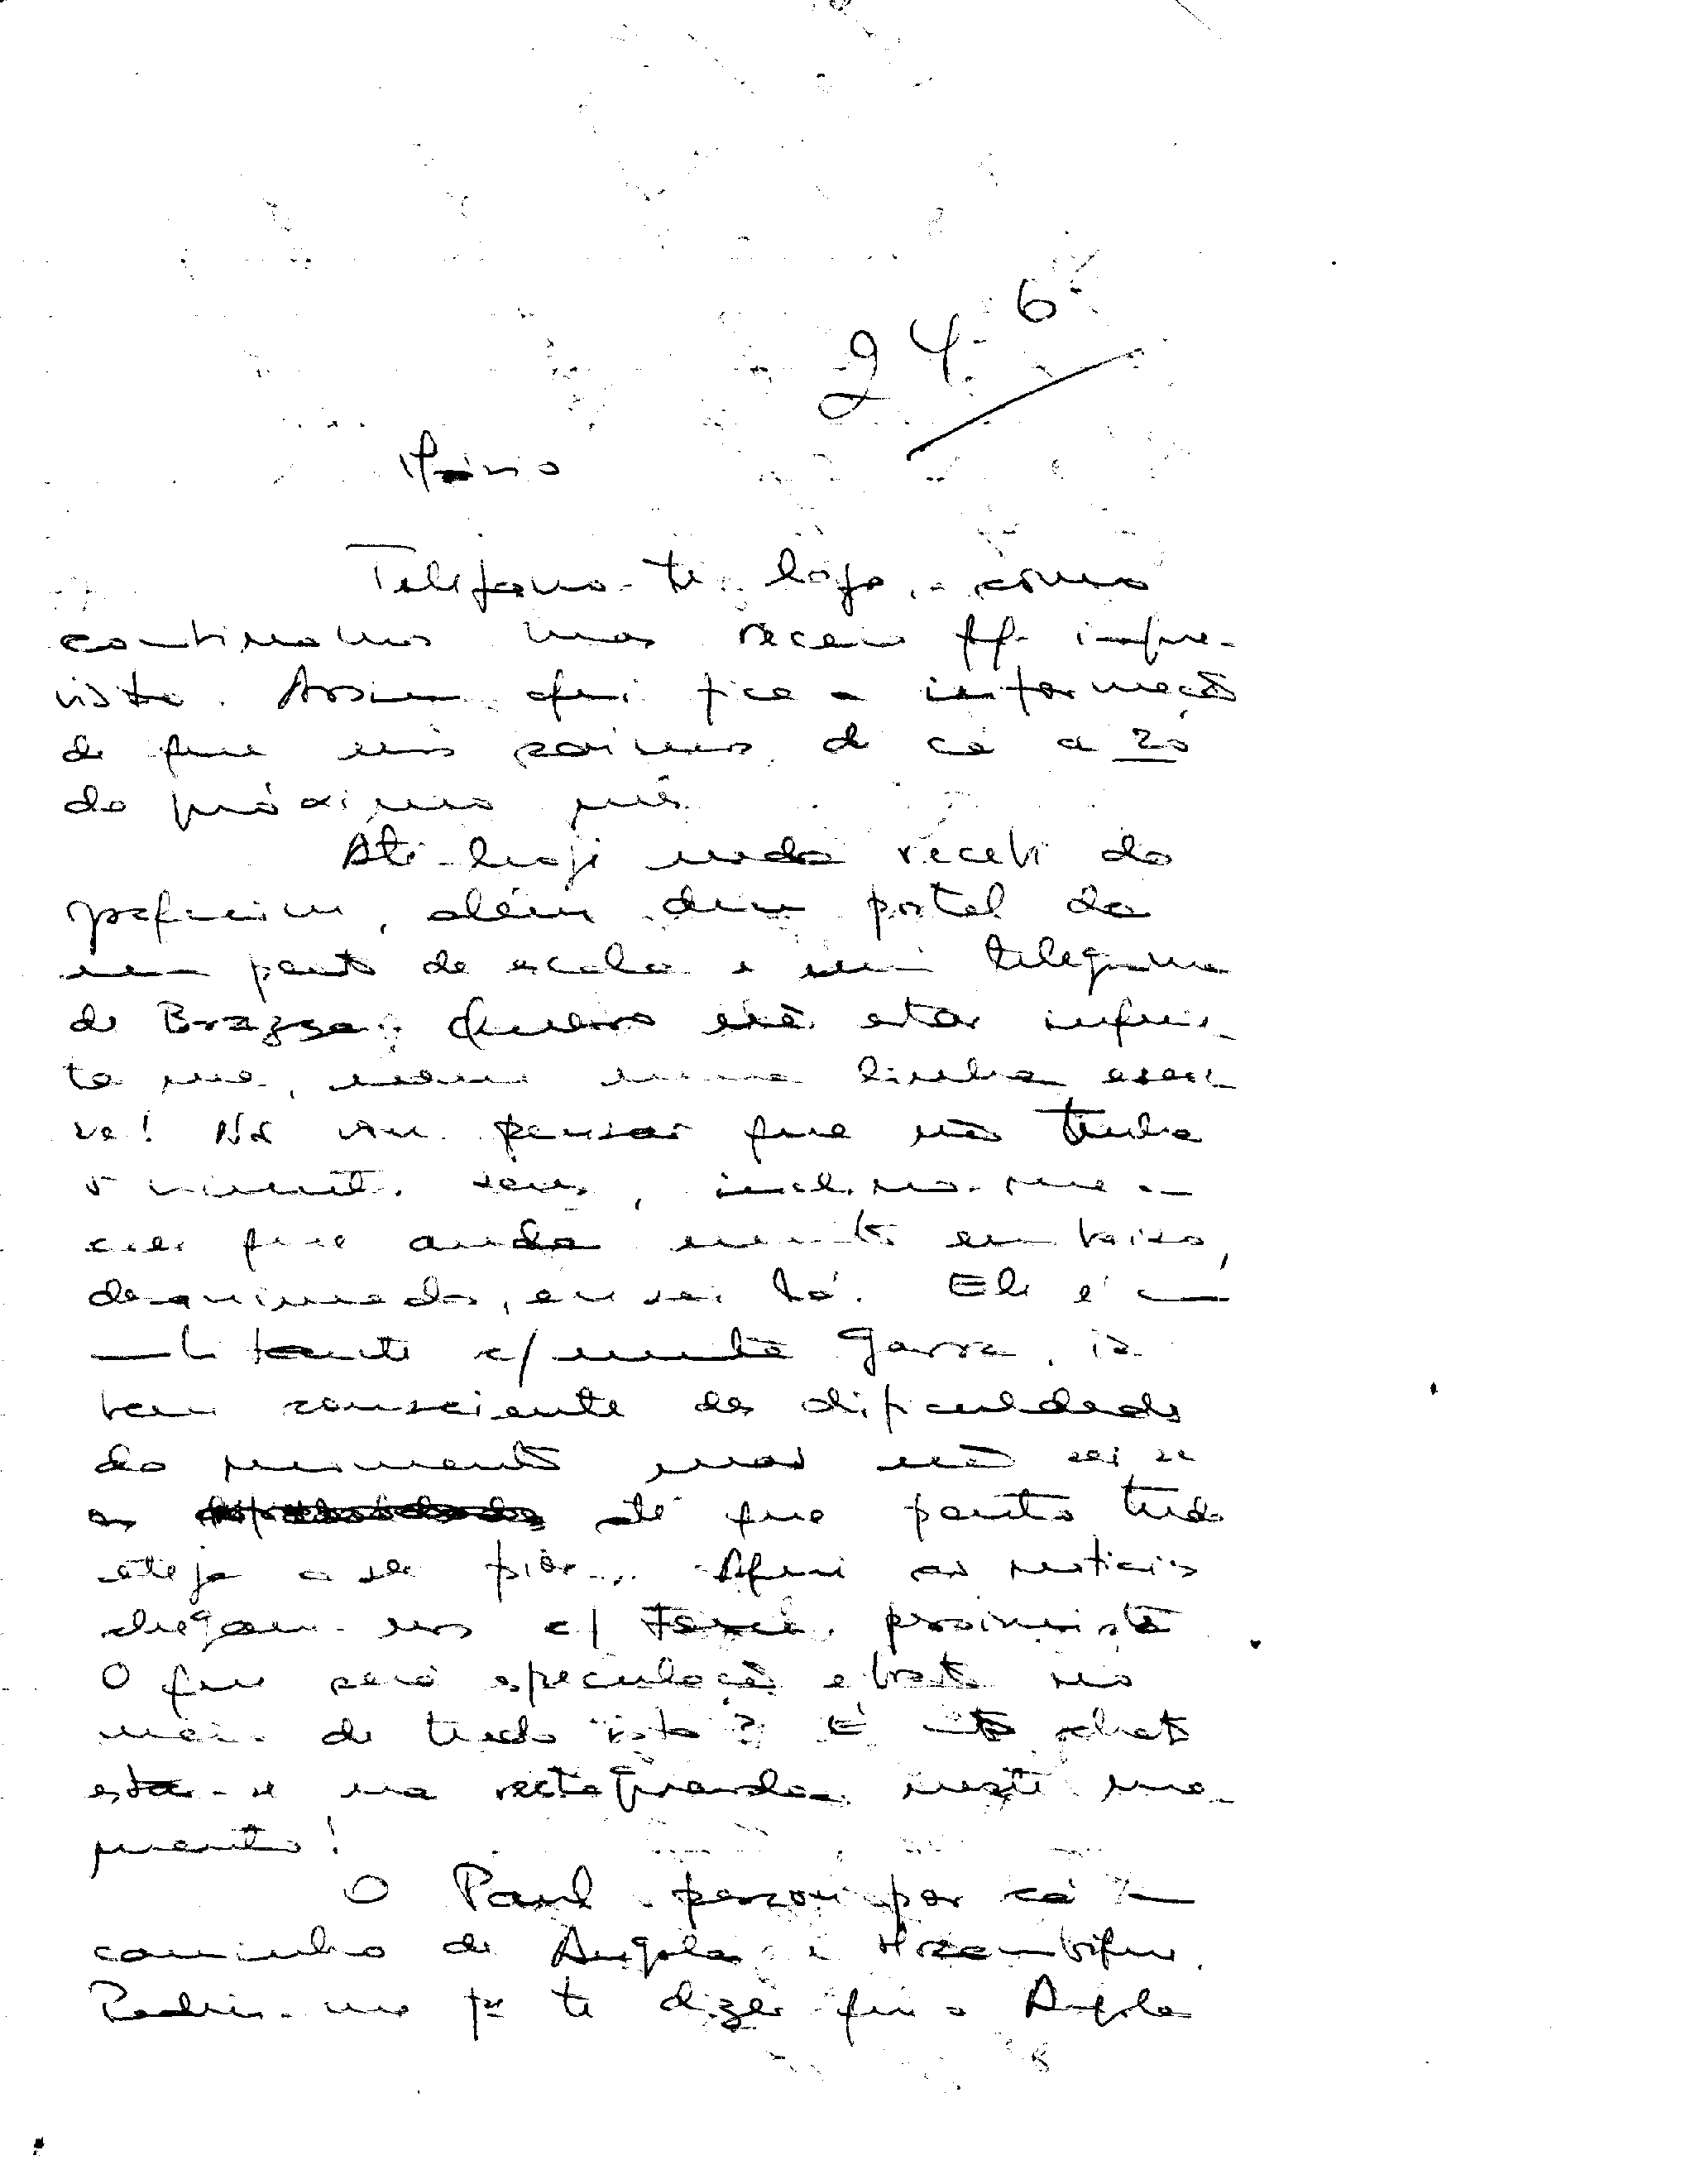 24.6
Mário
Telefono-te logo, como
combinamos mas receio qq. impre-
visto. Assim aqui fica a informação
de que nós saimos de cá a 20
do próximo mês.
Até hoje nada recebi do
, além dum postal da
um ponto de escala e um telegrama
de Brazza. Embora não estar
ta me, nem uma linha escre-
ve! Não vou pensar que não tenha
, inclino-me a
crer que anda muito em baixo,
desanimado, eu sei lá. Ele é um
militante c/ muita garra, ia
bem consciente das dificuldades
do momento mas não sei se
até que ponto tudo
esteja a ser pior... Aqui as notícias
chegam-nos c/ pessimista
O que será especulação e boato no
meio de tudo isto? É mto chato
estar-se na rectaguarda neste mo-
mento!
O Paul passou por cá a
caminho de Angola e Moçambique.
Pediu-me pª te dizer que a Angola